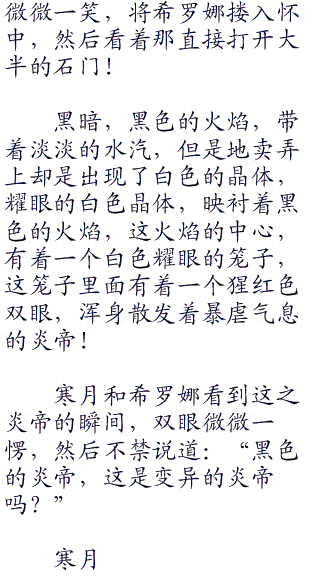 微微一笑，将希罗娜搂入怀
中，然后看着那直接打开大
半的石门！
黑暗，黑色的火焰，带
着淡淡的水汽，但是地卖弄
上却是出现了白色的晶体，
耀眼的白色晶体，映衬着黑
色的火焰，这火焰的中心，
有着一个白色耀眼的笼子，
这笼子里面有着一个猩红色
双眼，浑身散发着暴虐气息
的炎帝！
寒月和希罗娜看到这之
炎帝的瞬间，双眼微微一
愣，然后不禁说道：“黑色
的炎帝，这是变异的炎帝
吗？”
寒月